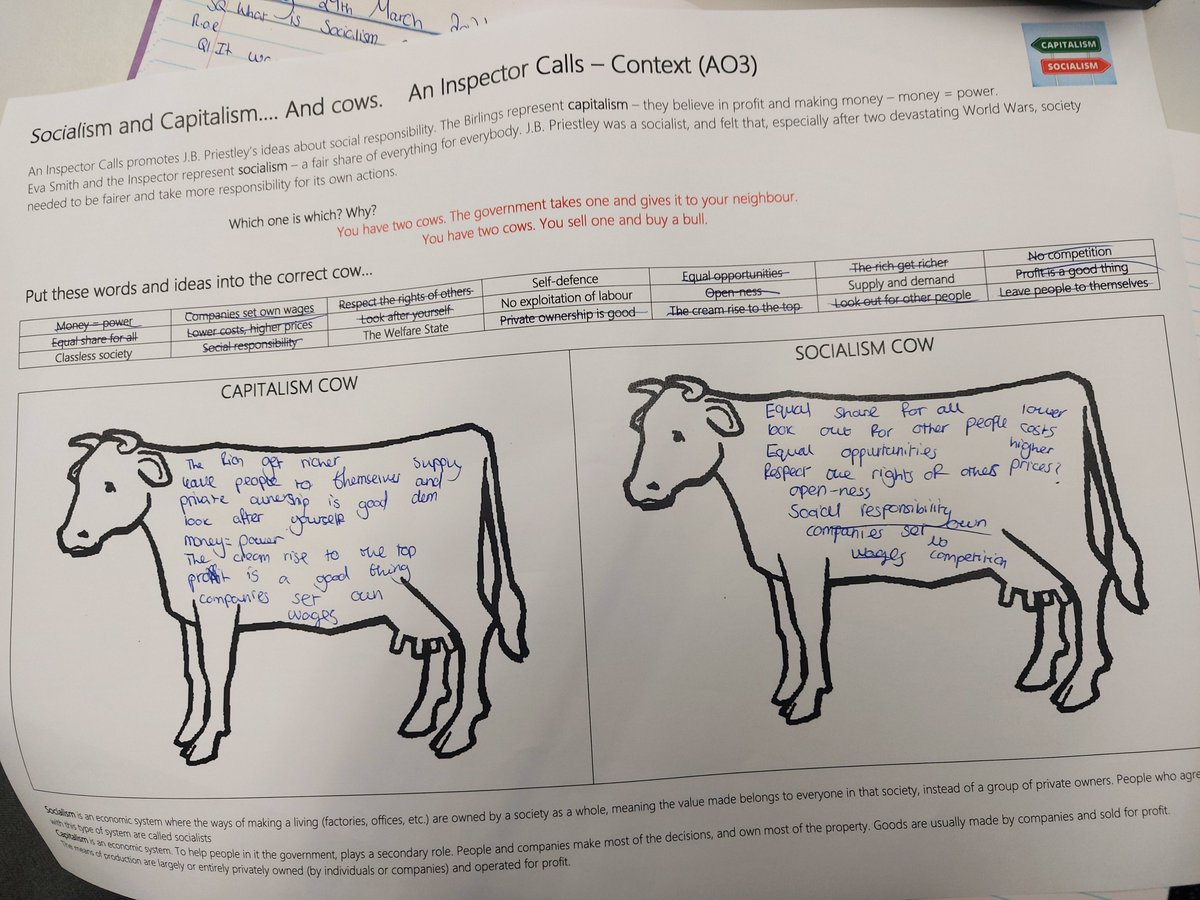 29th March
SQ What Is Socialism
R.o.e
Q1 It
CAPITALISM
SOCIALISM
Socialism and Capitalism.... And cows. An Inspector Calls – Context (AO3)
An Inspector Calls promotes J.B. Priestley's ideas about social responsibility. The Birlings represent capitalism – they believe in profit and making money – money = power.
Eva Smith and the Inspector represent socialism – a fair share of everything for everybody. J.B. Priestley was a socialist, and felt that, especially after two devastating World Wars, society
needed to be fairer and take more responsibility for its own actions.
Which one is which? Why?
You have two cows. The government takes one and gives it to your neighbour.
You have two cows. You sell one and buy a bull.
Put these words and ideas into the correct cow...
Money = power Companies set own wages Respect the rights of others Self-defence Equal opportunities The rich get richer No competition
Equal share for all Lower costs, higher prices Look after yourself No exploitation of labour Open-ness Supply and demand Profit is a good thing
Classless society Social responsibility The Welfare State Private ownership is good The cream rise to the top Look out for other people Leave people to themselves
CAPITALISM COW
The Rich get richer supply
leave people to themselves and
private ownership is good dem
look after yourself
money= power
The cream rise to the top
profit is a good thing
companies set own
wages
SOCIALISM COW
Equal share for all lower
look out for other people costs
Equal oppurtunities higher
Respect the rights of others prices?
open-ness
Social responsibility
companies set own
wages no competition
Socialism is an economic system where the ways of making a living (factories, offices, etc.) are owned by a society as a whole, meaning the value made belongs to everyone in that society, instead of a group of private owners. People who agre
with this type of system are called socialists
Capitalism is an economic system. To help people in it the government, plays a secondary role. People and companies make most of the decisions, and own most of the property. Goods are usually made by companies and sold for profit.
The means of production are largely or entirely privately owned (by individuals or companies) and operated for profit.